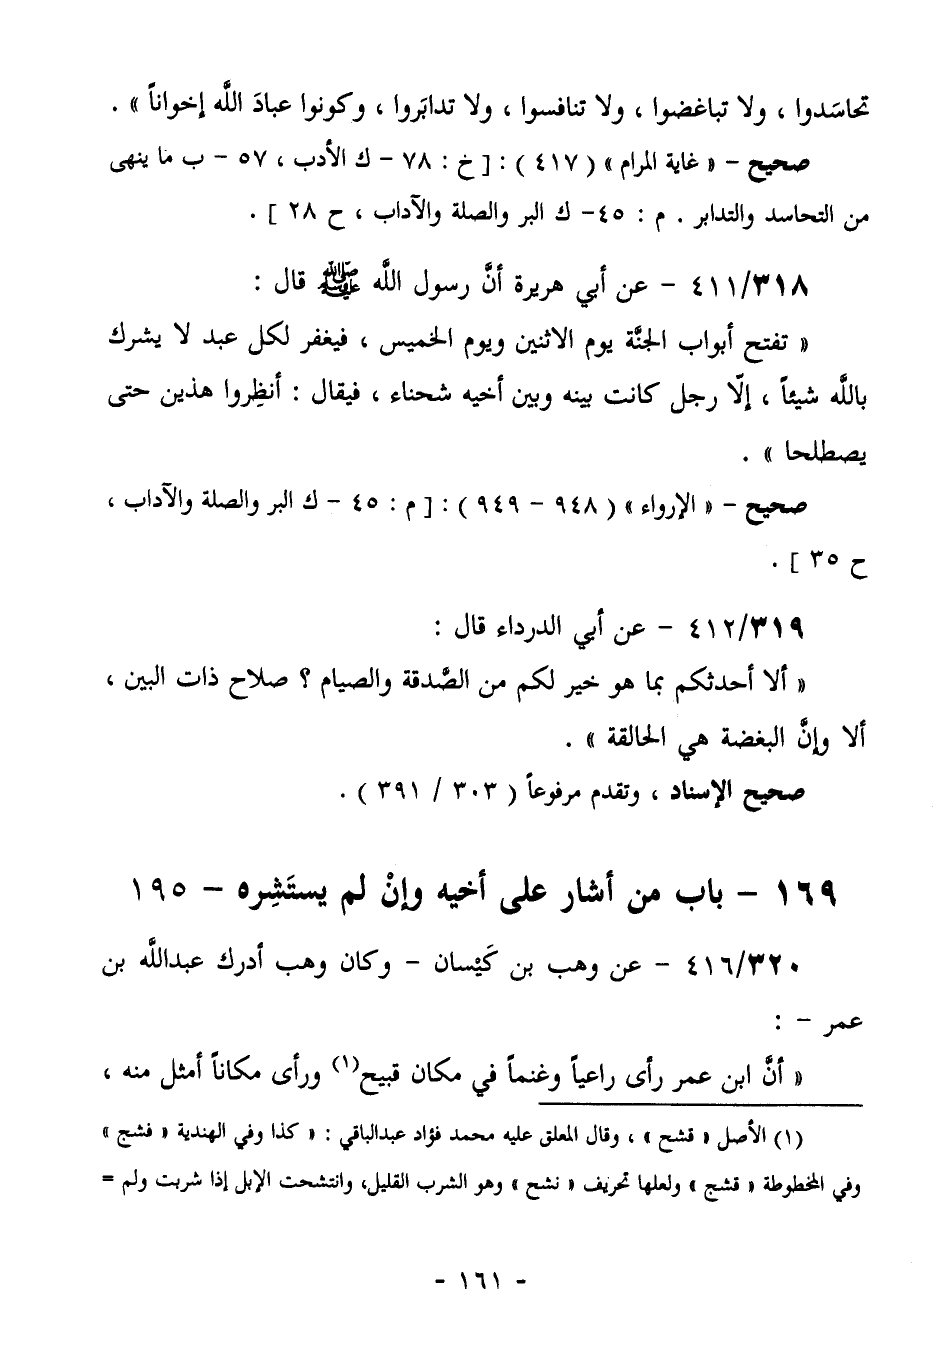 تحاسَدوا ، ولا تباغضوا ، ولا تنافسوا ، ولا تدابَروا ، وكونوا عبادَ اللَّه إخواناً » .
صحيح - « غاية المرام » ( ٤١٧ ) : [ خ : ٧٨ - ك الأدب ، ٥٧ - ب ما ينهى
من التحاسد والتدابر . م : ٤٥- ك البر والصلة والآداب ، ح ٢٨ ] .
٤١١/٣١٨ - عن أبي هريرة أنَّ رسول اللَّه ﷺ قال :
« تفتح أبواب الجنَّة يوم الاثنين ويوم الخميس ، فيغفر لكل عبد لا يشرك
باللَّه شيئاً ، إلّا رجل كانت بينه وبين أخيه شحناء ، فيقال : أنظِروا هذين حتى
يصطلحا » .
صحيح - « الإرواء » ( ٩٤٨ - ٩٤٩ ) : [ م : ٤٥ - ك البر والصلة والآداب ،
ح ٣٥ ] .
٤١٢/٣١٩ - عن أبي الدرداء قال :
« ألا أحدثكم بما هو خير لكم من الصَّدقة والصيام ؟ صلاح ذات البين ،
ألا وإنَّ البغضة هي الحالقة » .
صحيح الإسناد ، وتقدم مرفوعاً ( ٣٠٣ / ٣٩١ ) .
١٦٩ - باب من أشار على أخيه وإنْ لم يستَشِره - ١٩٥
٤١٦/٣٢٠ - عن وهب بن كَيْسان - وكان وهب أدرك عبداللَّه بن
عمر - :
« أنَّ ابن عمر رأى راعياً وغنماً في مكان قبيح(١) ورأى مكاناً أمثل منه ،
(١) الأصل « قشح » ، وقال المعلق عليه محمد فؤاد عبدالباقي : « كذا وفي الهندية « فشج »
وفي المخطوطة « قشج » ولعلها تحريف « نشح » وهو الشرب القليل، وانتشحت الإبل إذا شربت ولم =
- ١٦١ -